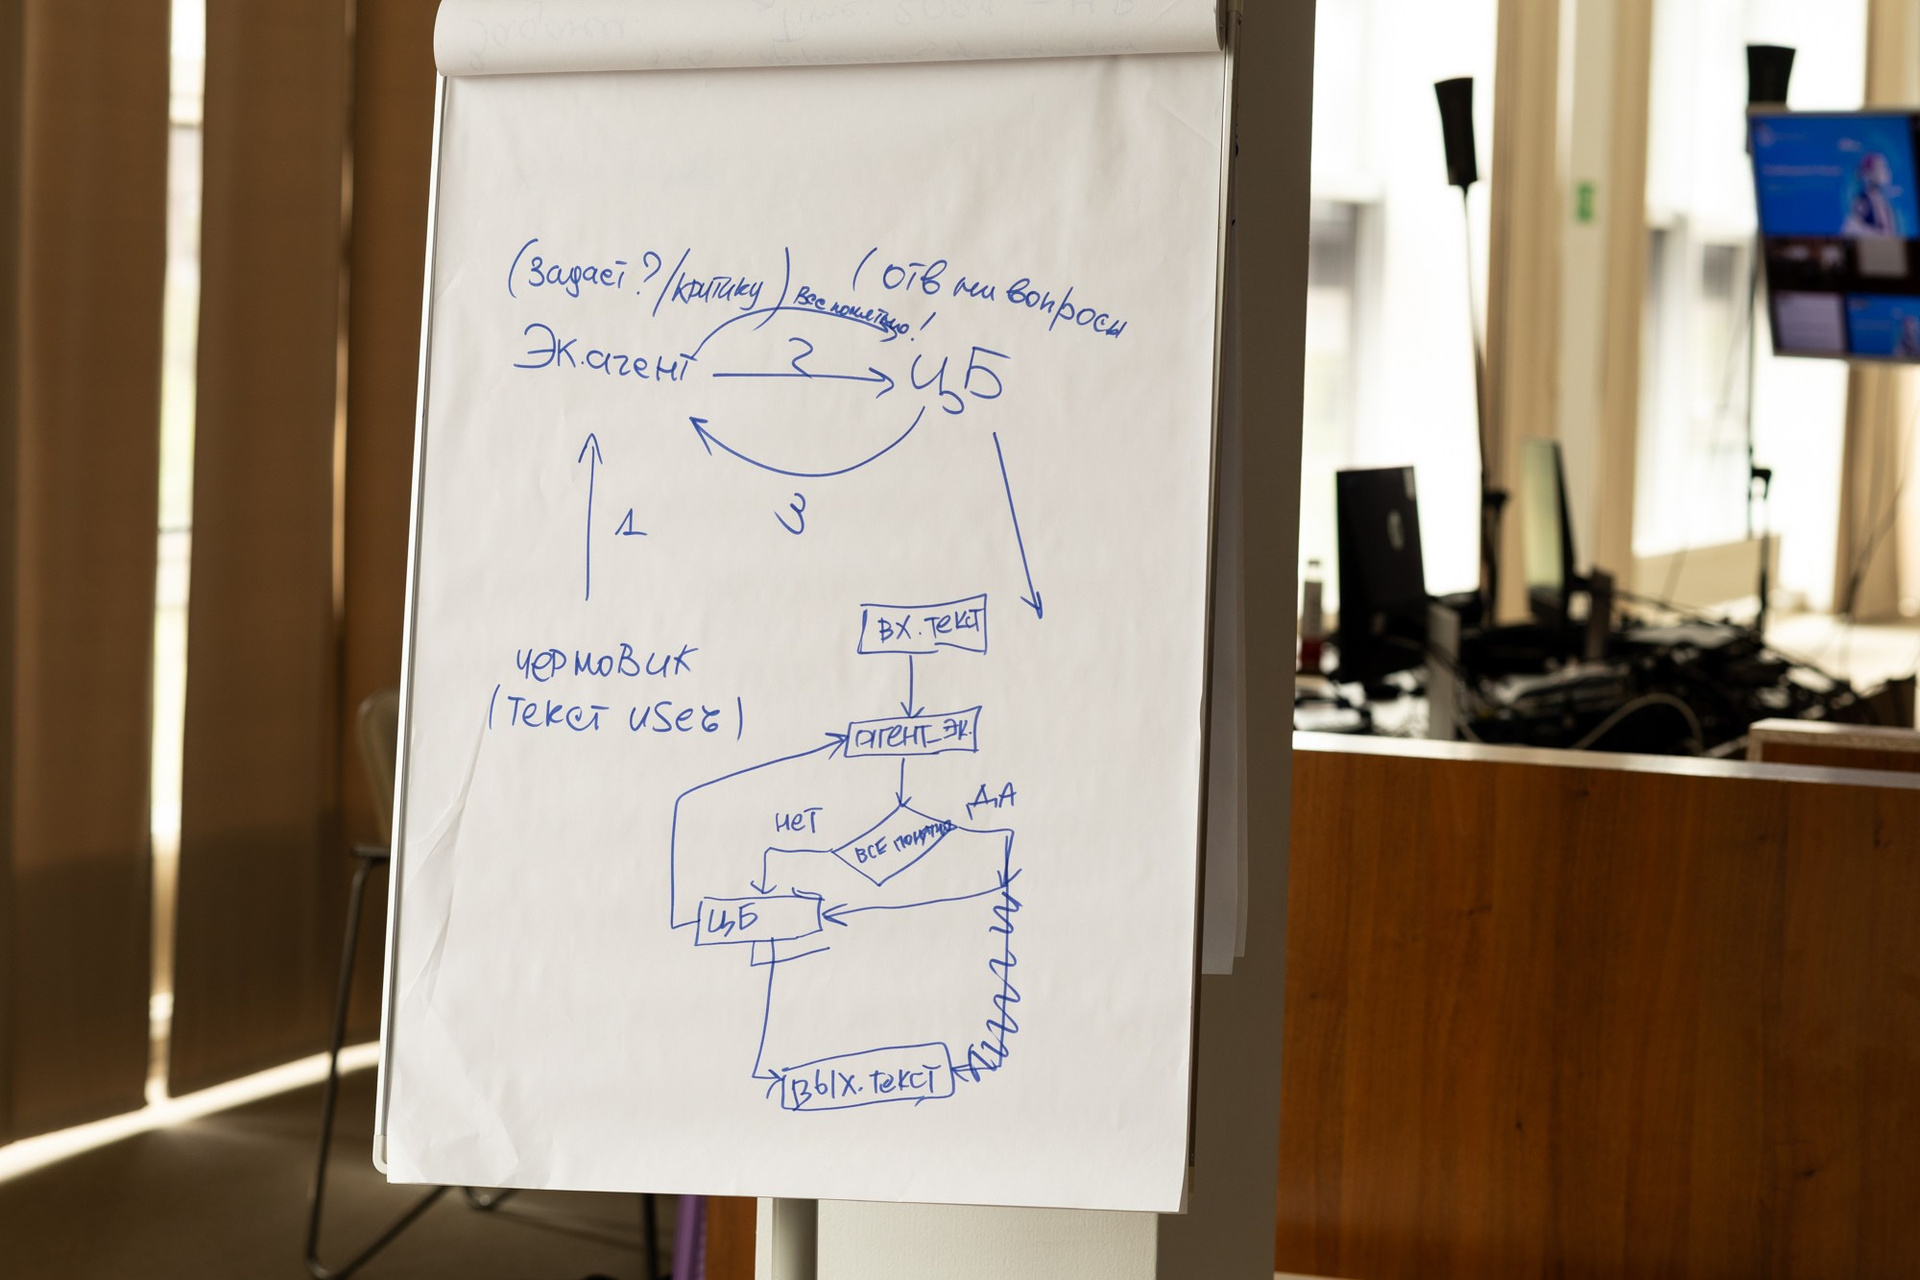 (Задаёт ?/критику)
Все понятно!
(отв на вопросы
Эк.агент
2
ЦБ
3
1
черновик
(текст user)
вх. текст
агент_эк.
нет
ДА
все понятно
ЦБ
вых. текст